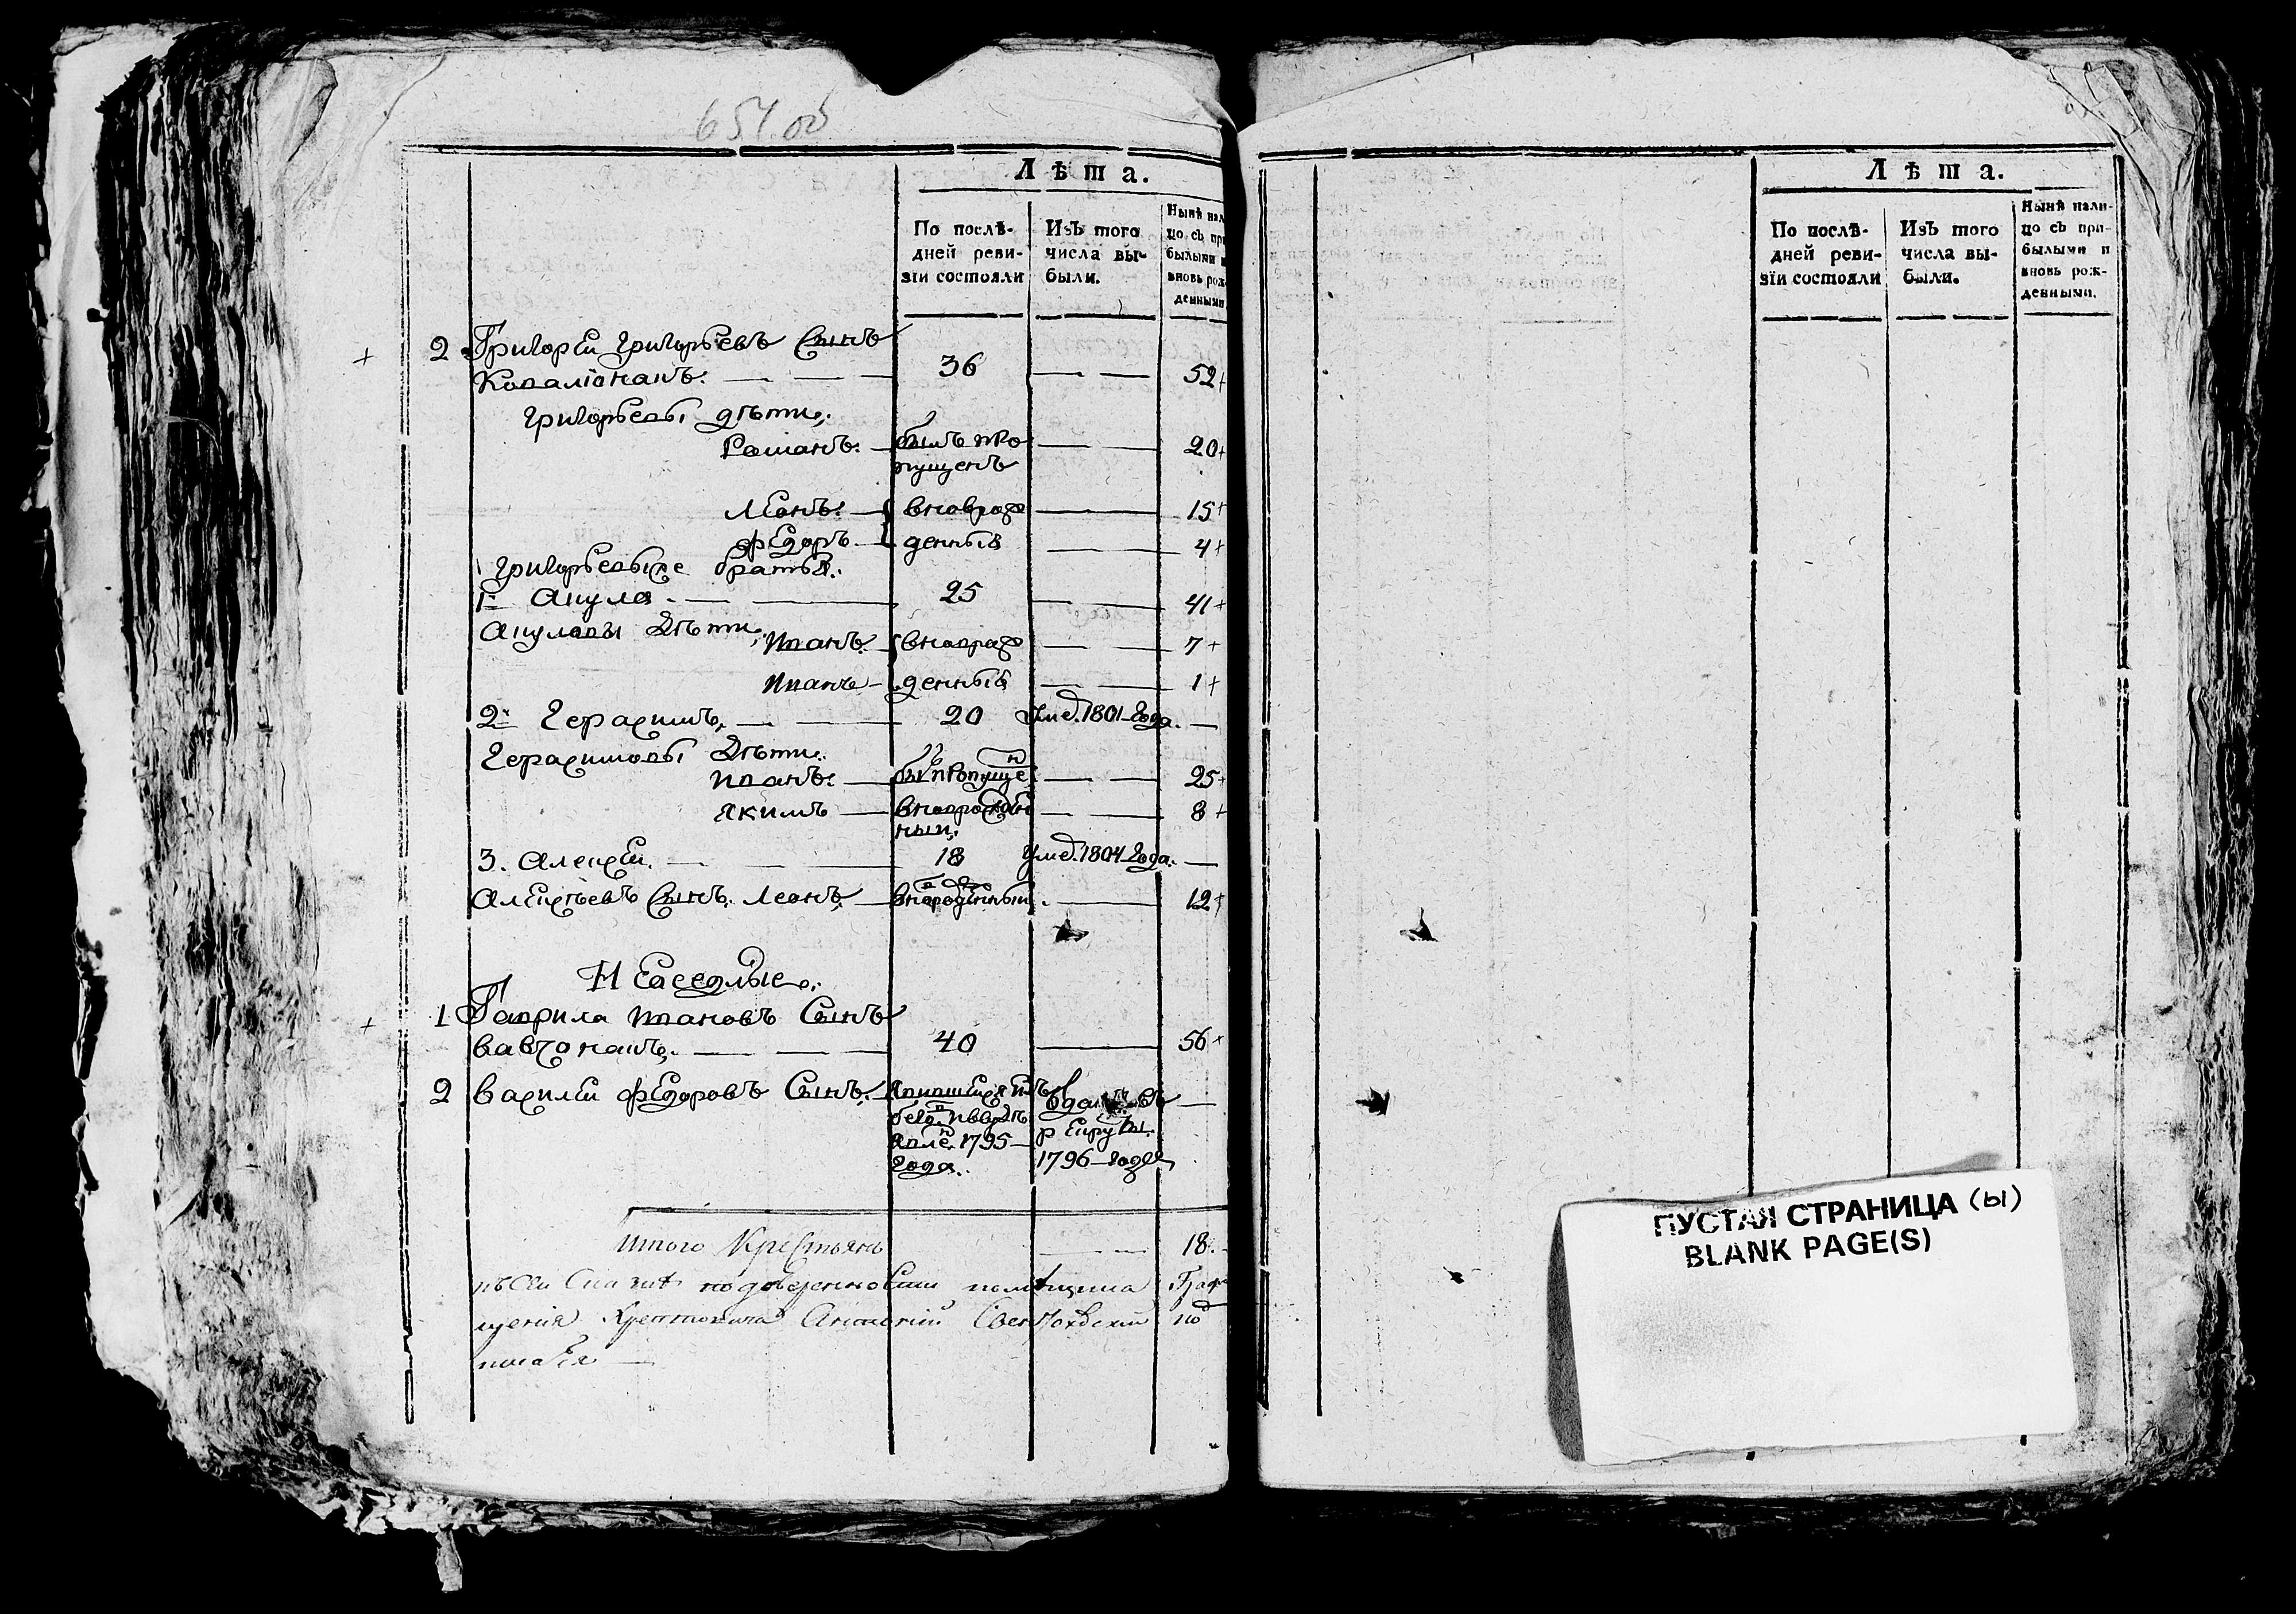 654 об
Лѣта.
По послѣ-
дней реви-
зіи состояли
Изъ того
числа вы-
были.
Нынѣ нал
цо съ при
былыми и
вновь рож
денными
2 Григорей Григорьевъ Сынъ
36 — — 52 +
Григорьевы дѣти,
Романъ. — былъ про — — 20 +
пущенъ
Леонъ. — вноврож — 15 +
Федоръ. — денныя — — 4 +
Григорьевы же братья.
1й Акула. — — 25 — — 41 +
Акуловы Дѣти,
Иванъ. вноврож — — 7 +
Иванъ — денныя — — 1 +
2й Герасимъ, — — 20 Умеръ. 1801 года. —
Герасимовы Дѣти.
Иванъ. — бы пропуще — — 25 +
Якимъ — вноврожден — — 8 +
ный.
3. Алексей. — — 18 Умеръ. 1804 года. —
Алексѣевъ Сынъ. Леонъ, — вноврожденный — 12 +
Неоседлые.
1 Гаврила Ивановъ Сынъ
40 — 56 +
2 Василей Федоровъ Сынъ. —
1795
года.
рекруты.
1796 годе
Итого Крестьянъ — — 18.
къ сей сказкѣ по довѣренности помѣщика
Антоній
Лѣта.
По послѣ-
дней реви-
зіи состояли
Изъ того
числа вы-
были.
Нынѣ нали-
цо съ при-
былыми и
вновь рож-
денными.
ПУСТАЯ СТРАНИЦА (ы)
BLANK PAGE(S)